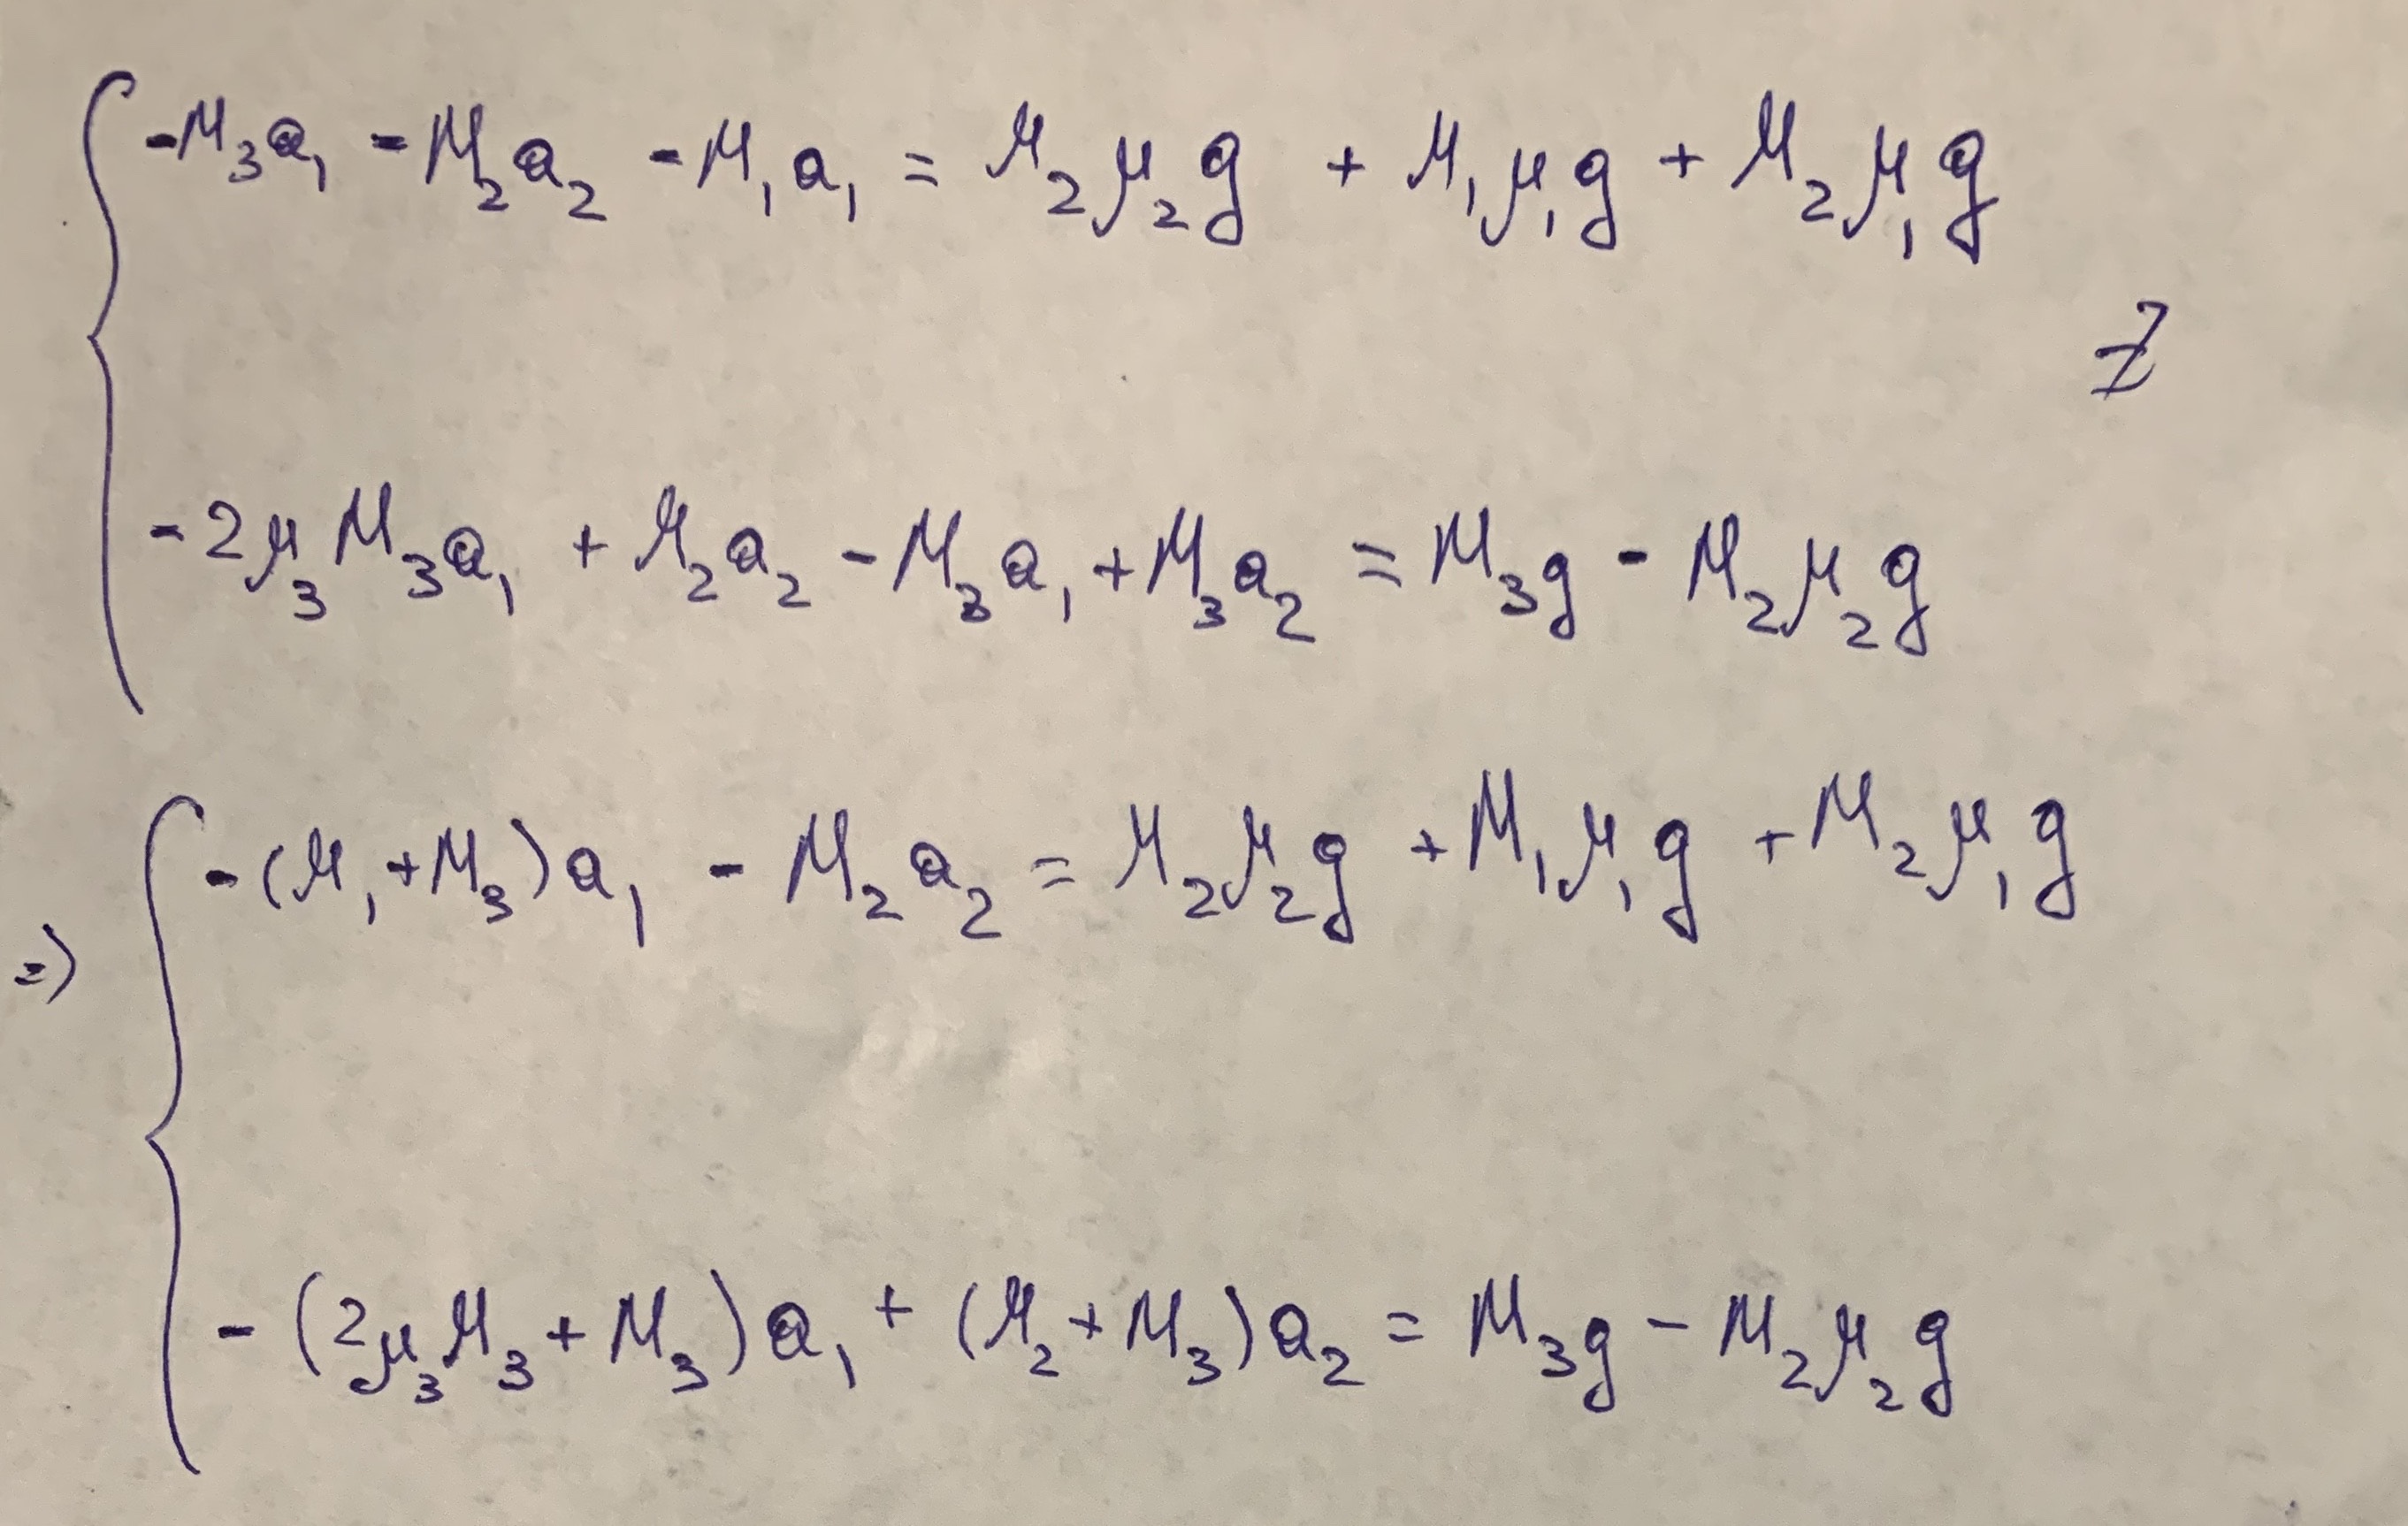 -M₃a₁ - M₂a₂ - M₁a₁ = M₂μ₂g + M₁μ₁g + M₂μ₁g
-2μ₃M₃a₁ + M₂a₂ - M₃a₁ + M₃a₂ = M₃g - M₂μ₂g
-(M₁+M₃)a₁ - M₂a₂ = M₂μ₂g + M₁μ₁g + M₂μ₁g
=>
-(2μ₃M₃ + M₃)a₁ + (M₂+M₃)a₂ = M₃g - M₂μ₂g